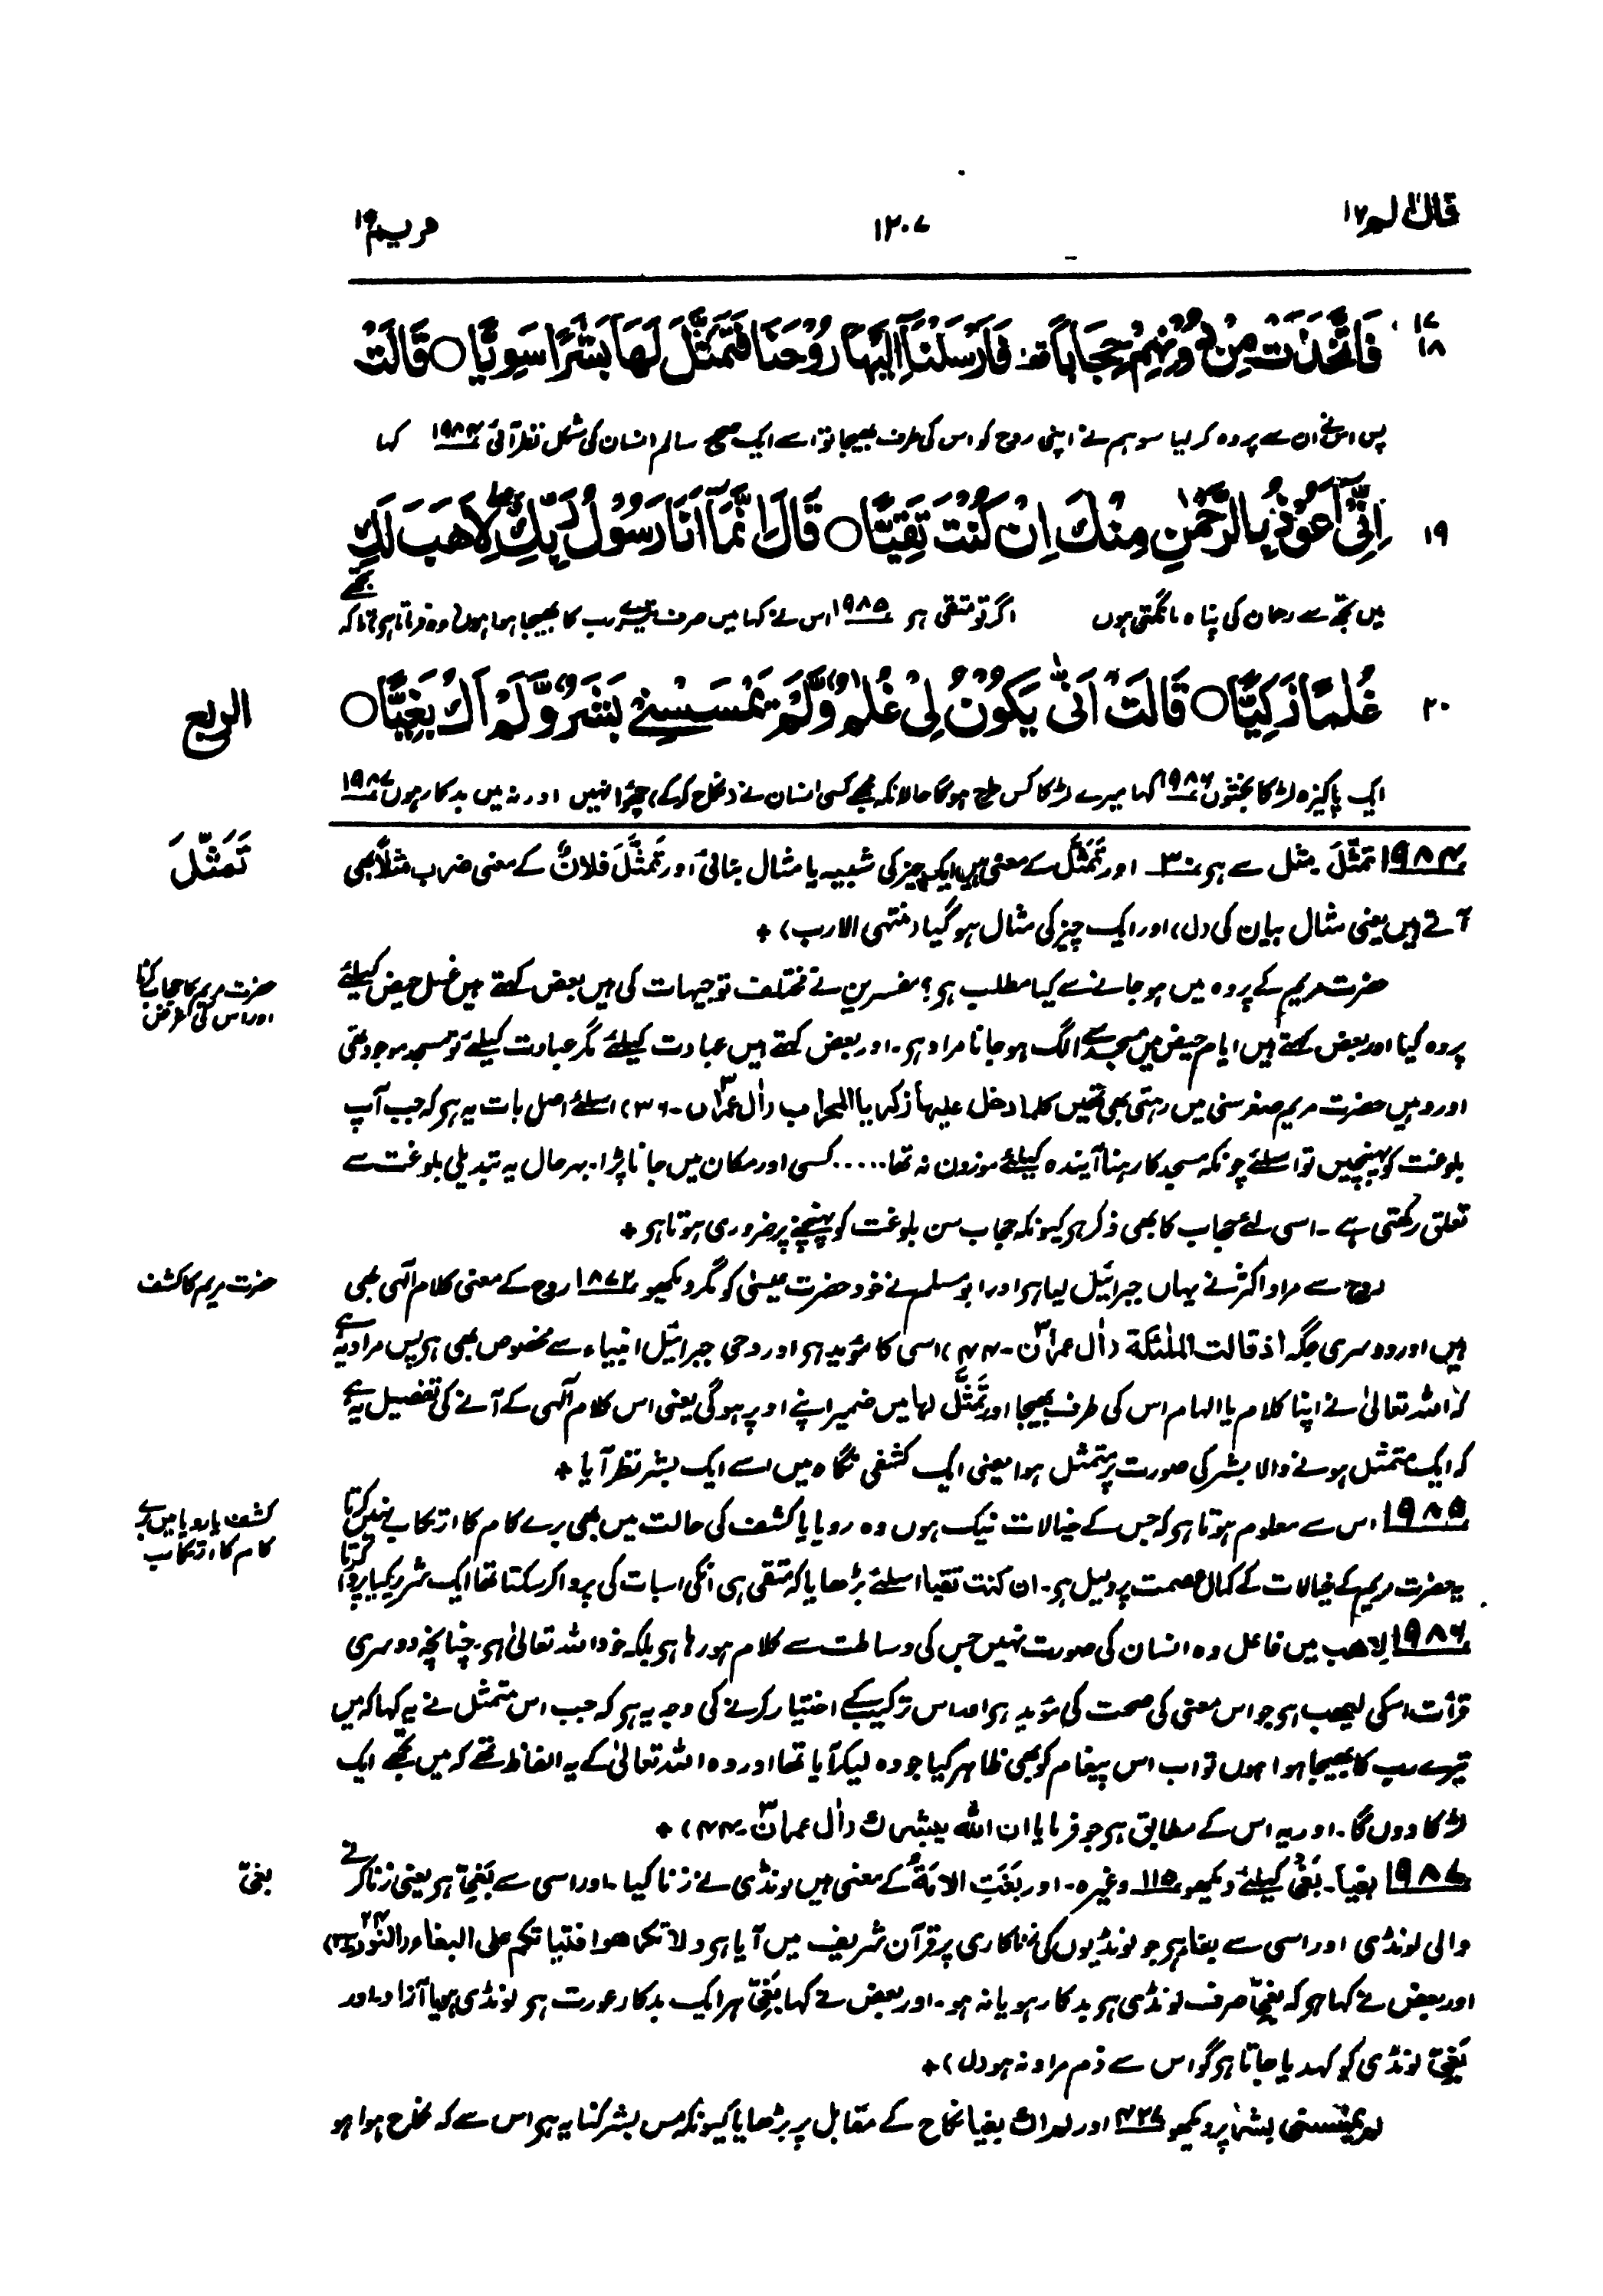 قال الم ۱۶
۱۲۰۷
مریم ۱۹
۱۷
۱۸
فَاتَّخَذَتْ مِنْ دُوْنِهِمْ حِجَابًا فَاَرْسَلْنَاۤ اِلَیْهَا رُوْحَنَا فَتَمَثَّلَ لَهَا بَشَرًا سَوِیًّا ○ قَالَتْ
پس اس نے ان سے پردہ کر لیا سو ہم نے اپنی روح کو اس کی طرف بھیجا تو اسے ایک صحیح سالم انسان کی شکل نظر آئی ۱۹۸۴ کہا
۱۹
اِنِّیْۤ اَعُوْذُ بِالرَّحْمٰنِ مِنْكَ اِنْ كُنْتَ تَقِیًّا ○ قَالَ اِنَّمَاۤ اَنَا رَسُوْلُ رَبِّكِ لِاَهَبَ لَكِ
میں تجھ سے رحمان کی پناہ مانگتی ہوں اگر تو متقی ہو ۱۹۸۵ اس نے کہا میں صرف تیرے رب کا بھیجا ہوا ہوں (وہ فرماتا ہے) تاکہ تجھے
۲۰
غُلٰمًا زَكِیًّا ○ قَالَتْ اَنّٰی یَكُوْنُ لِیْ غُلٰمٌ وَّلَمْ یَمْسَسْنِیْ بَشَرٌ وَّلَمْ اَكُ بَغِیًّا ○
الربع
ایک پاکیزہ لڑکا بخشوں ۱۹۸۶ کہا میرے لڑکا کس طرح ہوگا حالانکہ مجھے کسی انسان نے (نکاح کرکے) چھوا نہیں اور نہ میں بدکار ہوں ۱۹۸۷
تَمَثَّلَ
۱۹۸۴ تَمَثَّلَ۔ مثل سے ہو ۳۰ اور تَمَثَّلَ کے معنی ہیں ایک چیز کی شبیہ یا مثال بنائی اور تَمَثَّلَ فلانٌ کے معنی ضرب مثلاً بھی
آتے ہیں یعنی مثال بیان کی (ل) اور ایک چیز کی مثال ہو گیا (منتہی الارب) +
حضرت مریم کا حجاب کرنا
اور اس کی غرض
حضرت مریم کے پردہ میں ہو جانے سے کیا مطلب ہو؟ مفسرین نے مختلف توجیہات کی ہیں بعض کہتے ہیں غسل حیض کیلئے
پردہ کیا اور بعض کہتے ہیں ایام حیض میں مسجد سے الگ ہو جانا مراد ہو۔ اور بعض کہتے ہیں عبادت کیلئے مگر عبادت کیلئے تو مسجد موجود تھی
اور وہیں حضرت مریم صغر سنی میں رہتی بھی تھیں کلما دخل علیہا زکریا المحراب (اٰل عمراٰن۔۳۶) اسلئے اصل بات یہ ہو کہ جب آپ
بلوغت کو پہنچیں تو اسلئے چونکہ مسجد کا رہنا آیندہ کیلئے موزون نہ تھا..... کسی اور مکان میں جانا پڑا۔ بہر حال یہ تبدیلی بلوغت سے
تعلق رکھتی ہے۔ اسی لئے حجاب کا بھی ذکر ہو کیونکہ حجاب سن بلوغت کو پہنچنے پر ضروری ہوتا ہو +
حضرت مریم کا کشف
روح سے مراد اکثر نے یہاں جبرائیل لیا ہو اور ابو مسلم نے خود حضرت عیسٰی کو مگر دیکھو ۱۸۷۲ روح کے معنی کلام الٰہی بھی
ہیں اور دوسری جگہ اذ قالت الملٰئكة (اٰل عمراٰن۔۴۴) اسی کا مؤید ہو اور وحی جبرائیل انبیاء سے مخصوص بھی ہو پس مراد یہ ہے
کہ اللہ تعالیٰ نے اپنا کلام یا الہام اس کی طرف بھیجا اور تَمَثَّلَ لہا میں ضمیر اپنے اوپر ہوگی یعنی اس کلام الٰہی کے آنے کی تفصیل یہ ہے
کہ ایک متمثل ہونے والا بشر کی صورت پر متمثل ہوا یعنی ایک کشفی نگاہ میں اسے ایک بشر نظر آیا +
کشف یا رویا میں برے
کام کا ارتکاب
۱۹۸۵ اس سے معلوم ہوتا ہو کہ جس کے خیالات نیک ہوں وہ رویا یا کشف کی حالت میں بھی برے کام کا ارتکاب نہیں کرتا
یہ حضرت مریم کے خیالات کے کمال عصمت پر دلیل ہو۔ ان کنت تقیا اسلئے بڑھایا کہ متقی ہی انکی اس بات کی پروا کر سکتا تھا ایک شریر کیا پروا کرتا
۱۹۸۶ لاھب میں فاعل وہ انسان کی صورت نہیں جس کی وساطت سے کلام ہو رہا ہو بلکہ خود اللہ تعالیٰ ہو۔ چنانچہ دوسری
قرأت اسکی لیھب ہو جو اس معنی کی صحت کی مؤید ہو اور اس ترکیب کے اختیار کرنے کی وجہ یہ ہو کہ جب اس متمثل نے یہ کہا کہ میں
تیرے رب کا بھیجا ہوا ہوں تو اب اس پیغام کو بھی ظاہر کیا جو وہ لیکر آیا تھا اور وہ اللہ تعالیٰ کے یہ الفاظ تھے کہ میں تجھے ایک
لڑکا دوں گا۔ اور یہ اس کے مطابق ہو جو فرمایا ان اللّٰہ یبشرك (اٰل عمراٰن۔۴۴) +
بغیّ
۱۹۸۷ بغیا۔ بَغْی کیلئے دیکھو ۱۱۵ وغیرہ۔ اور بَغَتِ الامَةُ کے معنی ہیں لونڈی نے زنا کیا۔ اور اسی سے بَغِیّ ہو یعنی زنا کرنے
والی لونڈی اور اسی سے بغاء ہو جو لونڈیوں کی زناکاری پر قرآن شریف میں آیا ہو ولا تکرھوا فتیاتکم علی البغاء (النور ۲۴۔۳۳)
اور بعض نے کہا ہو کہ بَغِیّ صرف لونڈی ہو بدکار ہو یا نہ ہو۔ اور بعض نے کہا بَغِیّ ہر ایک بدکار عورت ہو لونڈی ہو یا آزاد۔ اور
بَغِیّ لونڈی کو کہہ دیا جاتا ہو گو اس سے ذم مراد نہ ہو (ل) +
لم یمسسنی بشر پر دیکھو ۴۲۷ اور لم اك بغیا نکاح کے مقابل پر بڑھایا کیونکہ مس بشر کنایہ ہو اس سے کہ نکاح ہوا ہو